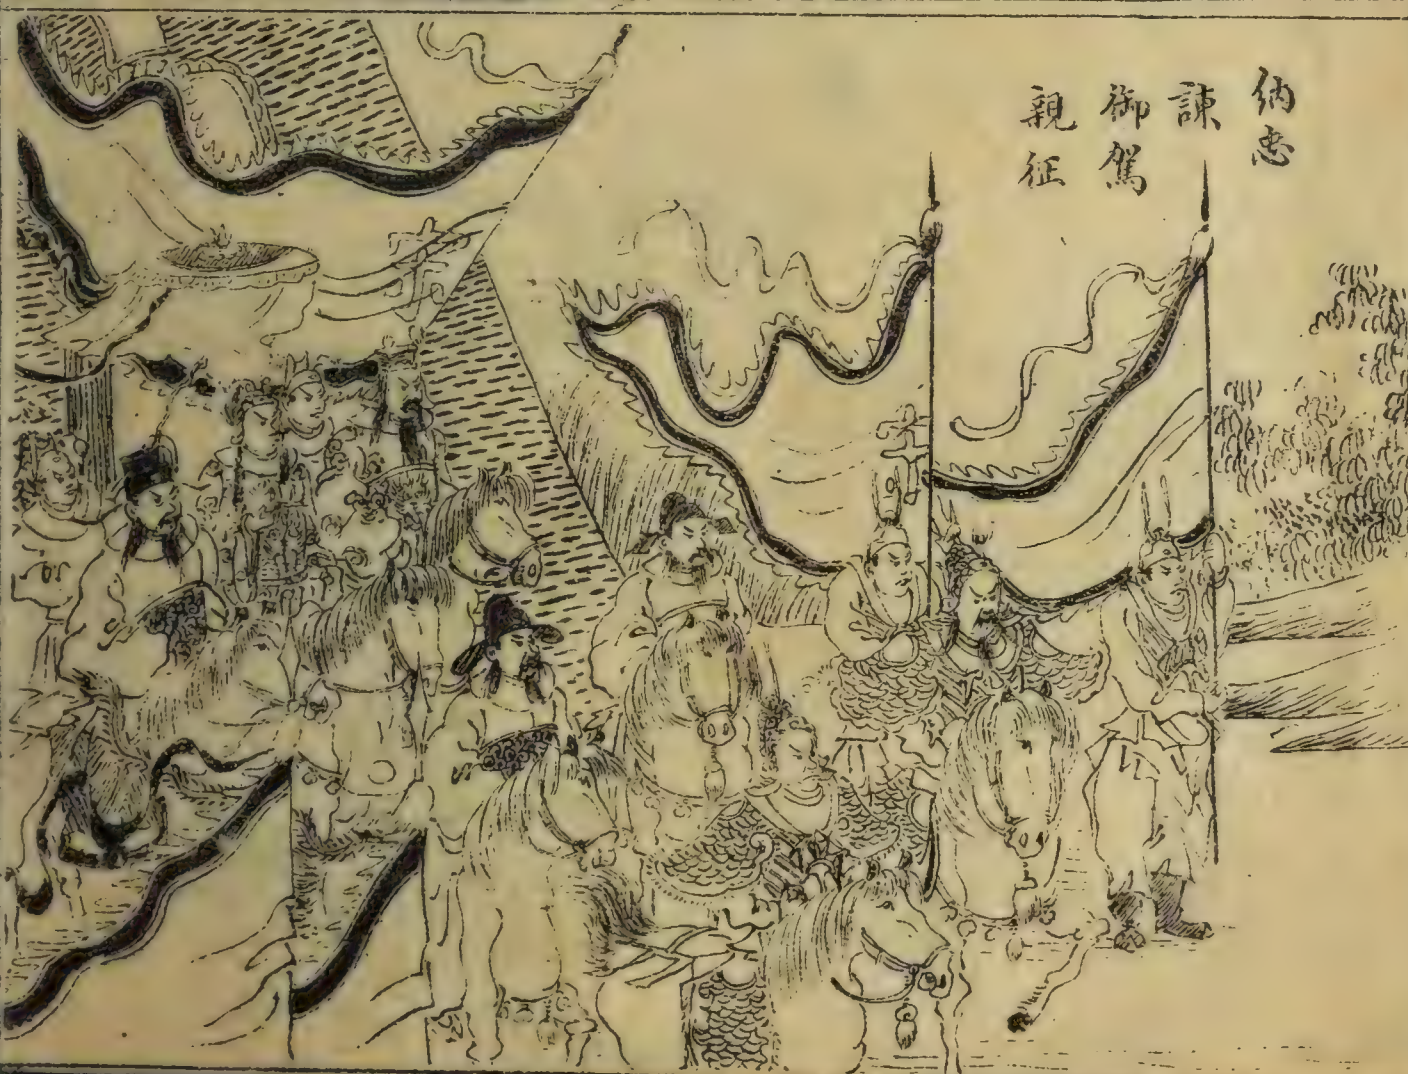 納忠
諫
御駕
親征